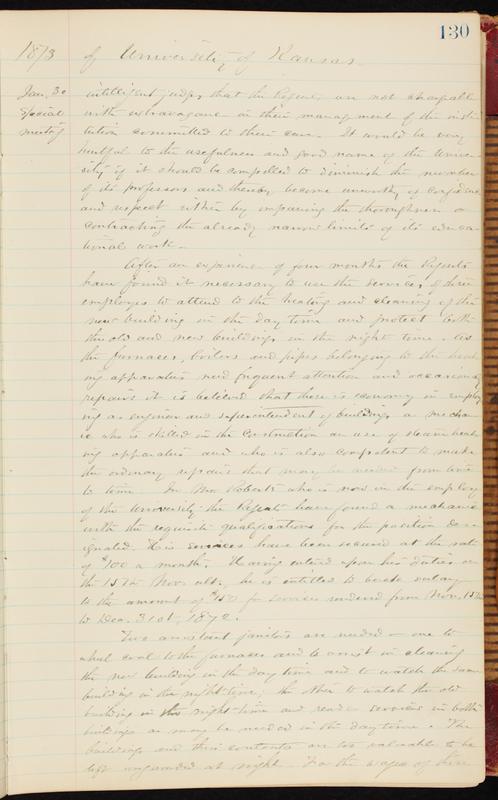 130
1873 of University of Kansas
Jan. 30 intelligent judges that the Regents are not chargeable
Special with extravagance in their management of the insti-
meeting tution committed to their care. It would be very
hurtful to the usefulness and good name of the Univer-
sity if it should be compelled to diminish the number
of its professors and thereby become unworthy of confidence
and respect either by impairing the thoroughness or
contracting the already narrow limits of its educa-
tional work.
After an experience of four months the Regents
have found it necessary to use the services of three
employes to attend to the heating and cleaning of the
new building in the day time and protect both
the old and new buildings in the night time. As
the furnaces, boilers and pipes belonging to the heat-
ing apparatus need frequent attention and occasional
repairs it is believed that there is economy in employ-
ing as engineer and superintendent of buildings a mechan-
ic who is skilled in the construction an use of steam heat-
ing apparatus and who is also competent to make
the ordinary repairs that may be needed from time
to time. In Mr. Roberts who is now in the employ
of the University the Regents have found a mechanic
with the requisite qualifications for the position des-
ignated. His services have been secured at the rate
of $100 a month. Having entered upon his duties on
the 15th Nov. ult. he is entitled to back salary
to the amount of $150 for services rendered from Nov. 15th
to Dec. 31st, 1872.
Two assistant janitors are needed - one to
wheel coal to the furnaces and to assist in cleaning
the new building in the day time and to watch the same
building in the night time; the other to watch the old
building in the night time and render services in both
buildings as may be needed in the day time. The
buildings and their contents are too valuable to be
left unguarded at night. For the wages of these